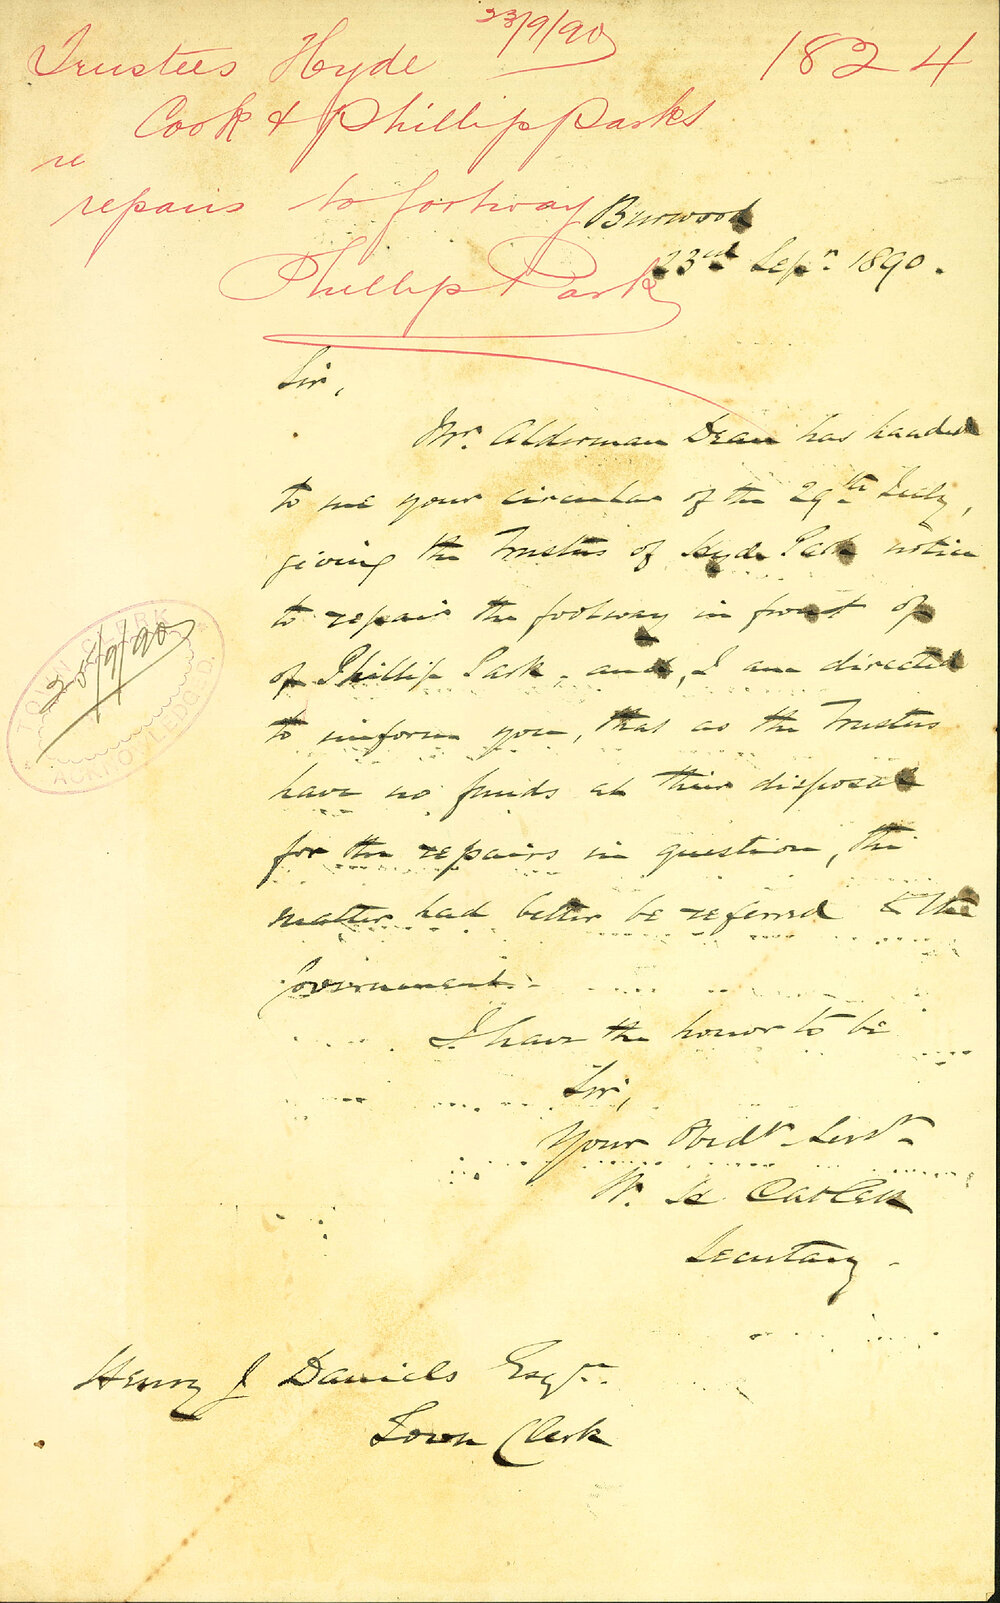 23/9/90
Trustees Hyde
1824
Cook & Phillip Parks
re
repairs to footway
Phillip Park
Burwood
23rd Sepr. 1890.
Sir,
Mr. Alderman Dean has handed
to me your circular of the 29th July,
giving the Trustees of Hyde Park notice
to repair the footway in front of
of Phillip Park, and, I am directed
to inform you, that as the Trustees
have no funds at their disposal
for the repairs in question, the
matter had better be referred to the
Government.
I have the honor to be
Sir,
Your Obedt. Servt.
W. H.
Secretary
Henry J Daniels Esqre.
Town Clerk
TOWN CLERK
/9/90
ACKNOWLEDGED.